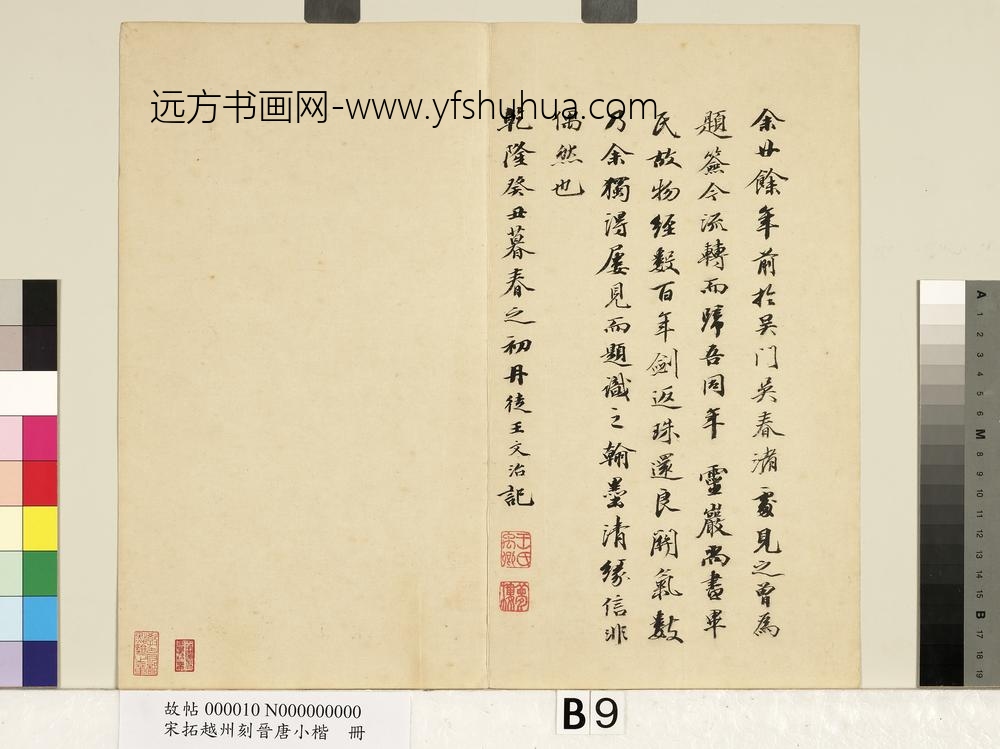 远方书画网-www.yfshuhua.com
余廿餘年前於吴门吴春渚處見之曾為
題簽今流轉而歸吾同年 靈巖尚書畢
氏故物經數百年劍返珠還良関氣數
乃余獨得屢見而題識之翰墨清緣信非
偶然也
乾隆癸丑暮春之初丹徒王文治記
王氏禹卿
夢樓
A 1 2 3 4 5 6 M 8 9 10 11 12 13 14 15 B 17 18 19
故帖 000010 N000000000
宋拓越州刻晉唐小楷 冊
B 9